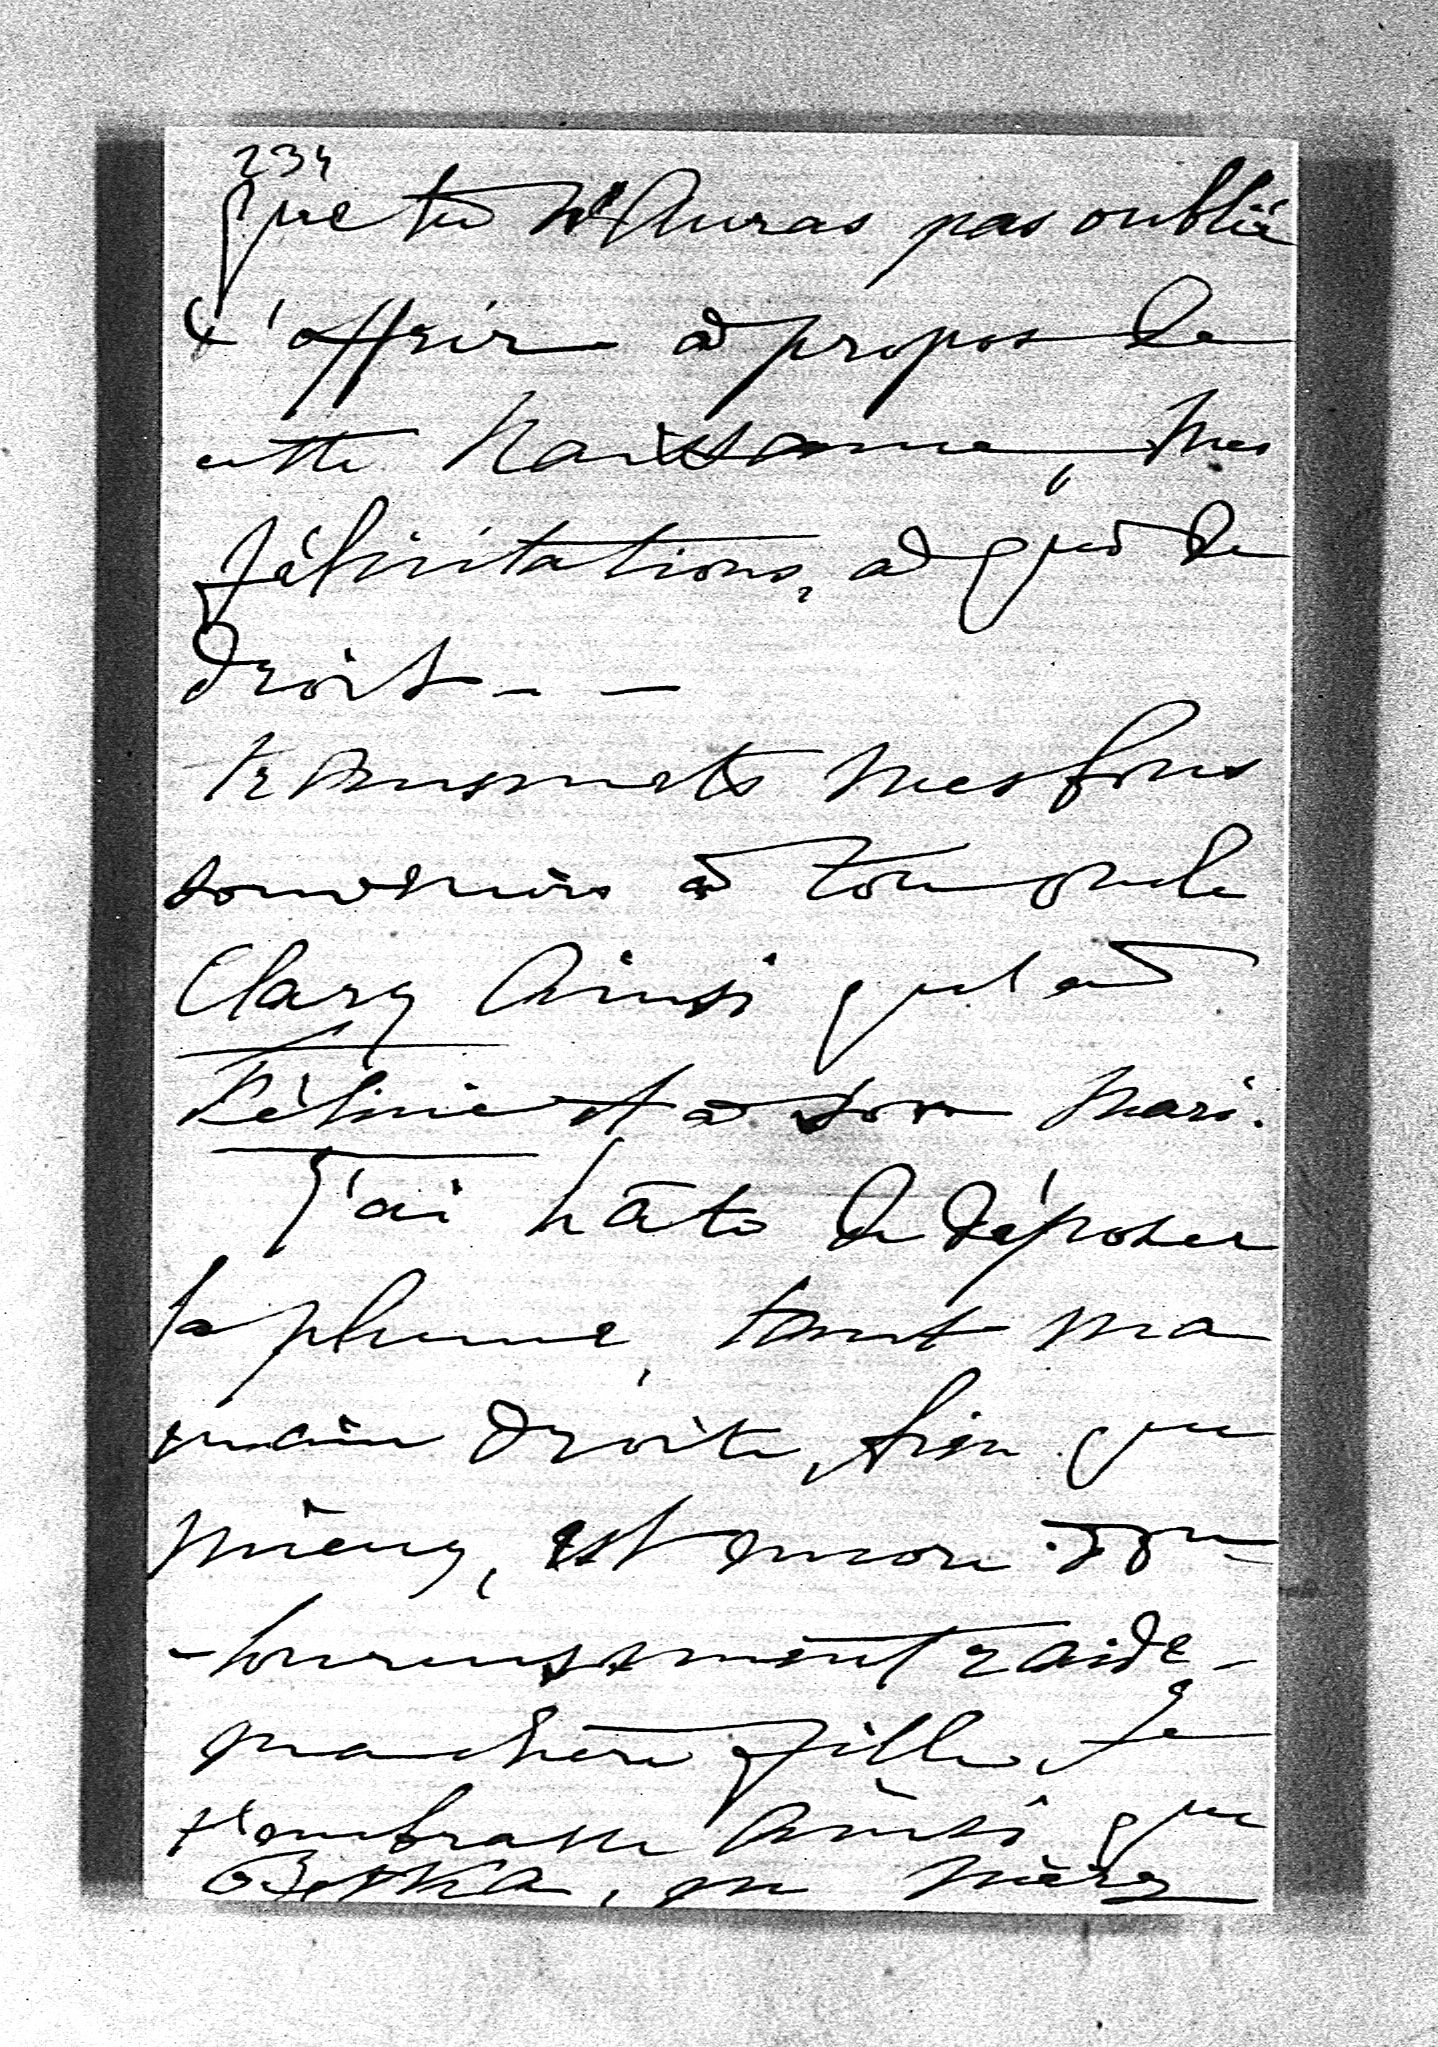 234
que tu n'auras pas oublié
d'offrir à propos de
cette Naissance, mes
félicitations, à qui de
droit - -
transmets mes bons
souvenirs à ton oncle
Clary Ainsi qu'à
Féline et à son Mari.
J'ai hâte de déposer
la plume, tant ma
main droite, bien que
mieux, est encore dou-
-loureusement raide -
ma chère fille, Je
t'embrasse Ainsi que
Betka, en